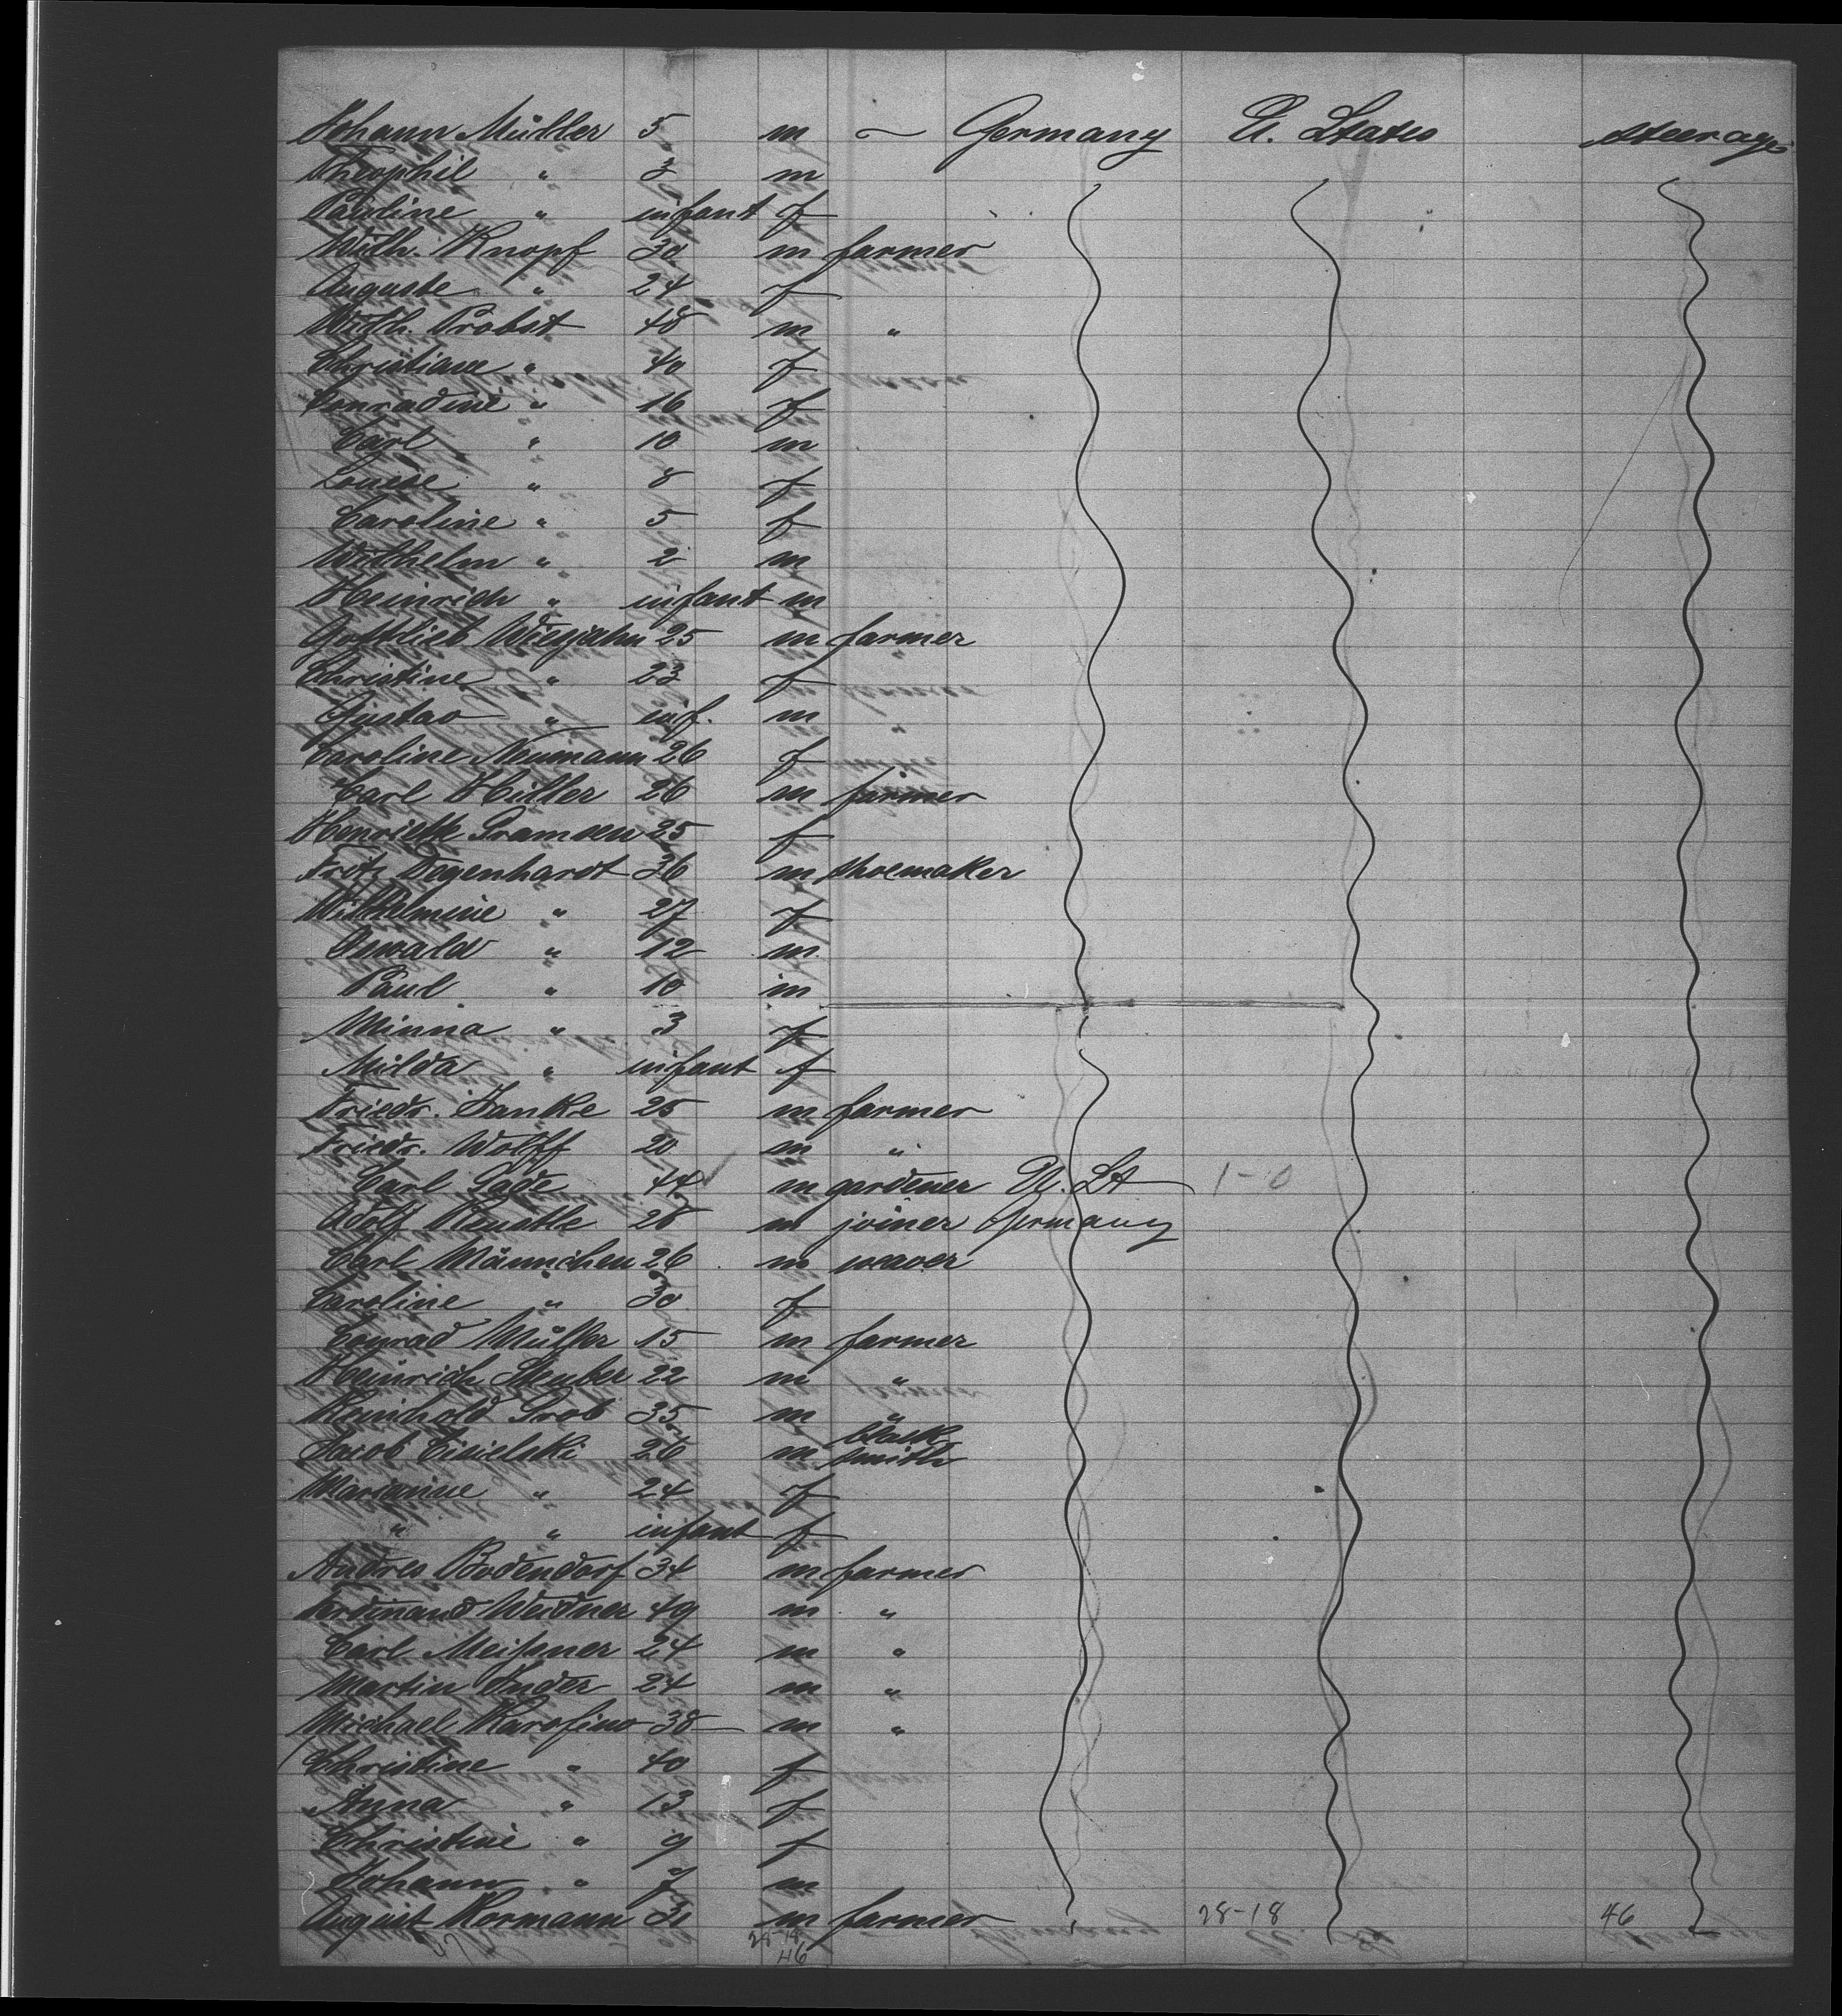 Johann Müller 5 m — Germany U. States steerage
Theophil " 3 m
Pauline " infant f
Wilh. Knopf 30 m farmer
Auguste " 24 f
Wilh. Probst 48 m "
Christiane " 40 f
Conradine " 16 f
Carl " 10 m
Louise " 8 f
Caroline " 5 f
Wilhelm " 2 m
Heinrich " infant m
Gottlieb 25 m farmer
Christine " 23 f
Gustav " inf. m
Caroline Neumann 26 f
Carl Hiller 26 m farmer
Henriette 25 f
Degenhardt 36 m shoemaker
Wilhelmine " 27 f
Oswald " 12 m
Paul " 10 m
Minna " 3 f
Milda " infant f
Friedr. Janke 25 m farmer
Friedr. Wolff 20 m "
Carl Gade 44 m gardener U. St 1-0
Adolf 28 m joiner Germany
Carl Männchen 26 m weaver
Caroline " 30 f
Conrad Müller 15 m farmer
Heinrich Steuber 22 m "
Reinhold Grob 35 m "
Jacob 26 m black smith
Marianne " 24 f
" " infant f
Andres Bodendorf 34 m farmer
Ferdinand Weidner 49 m "
Carl Meißner 24 m "
Martin 24 m "
Michael 38 m "
Christine " 40 f
Anna " 13 f
Christine " 9 f
Johann " 7 m
August Hormann 30 m farmer 28-18 46
28-18
46